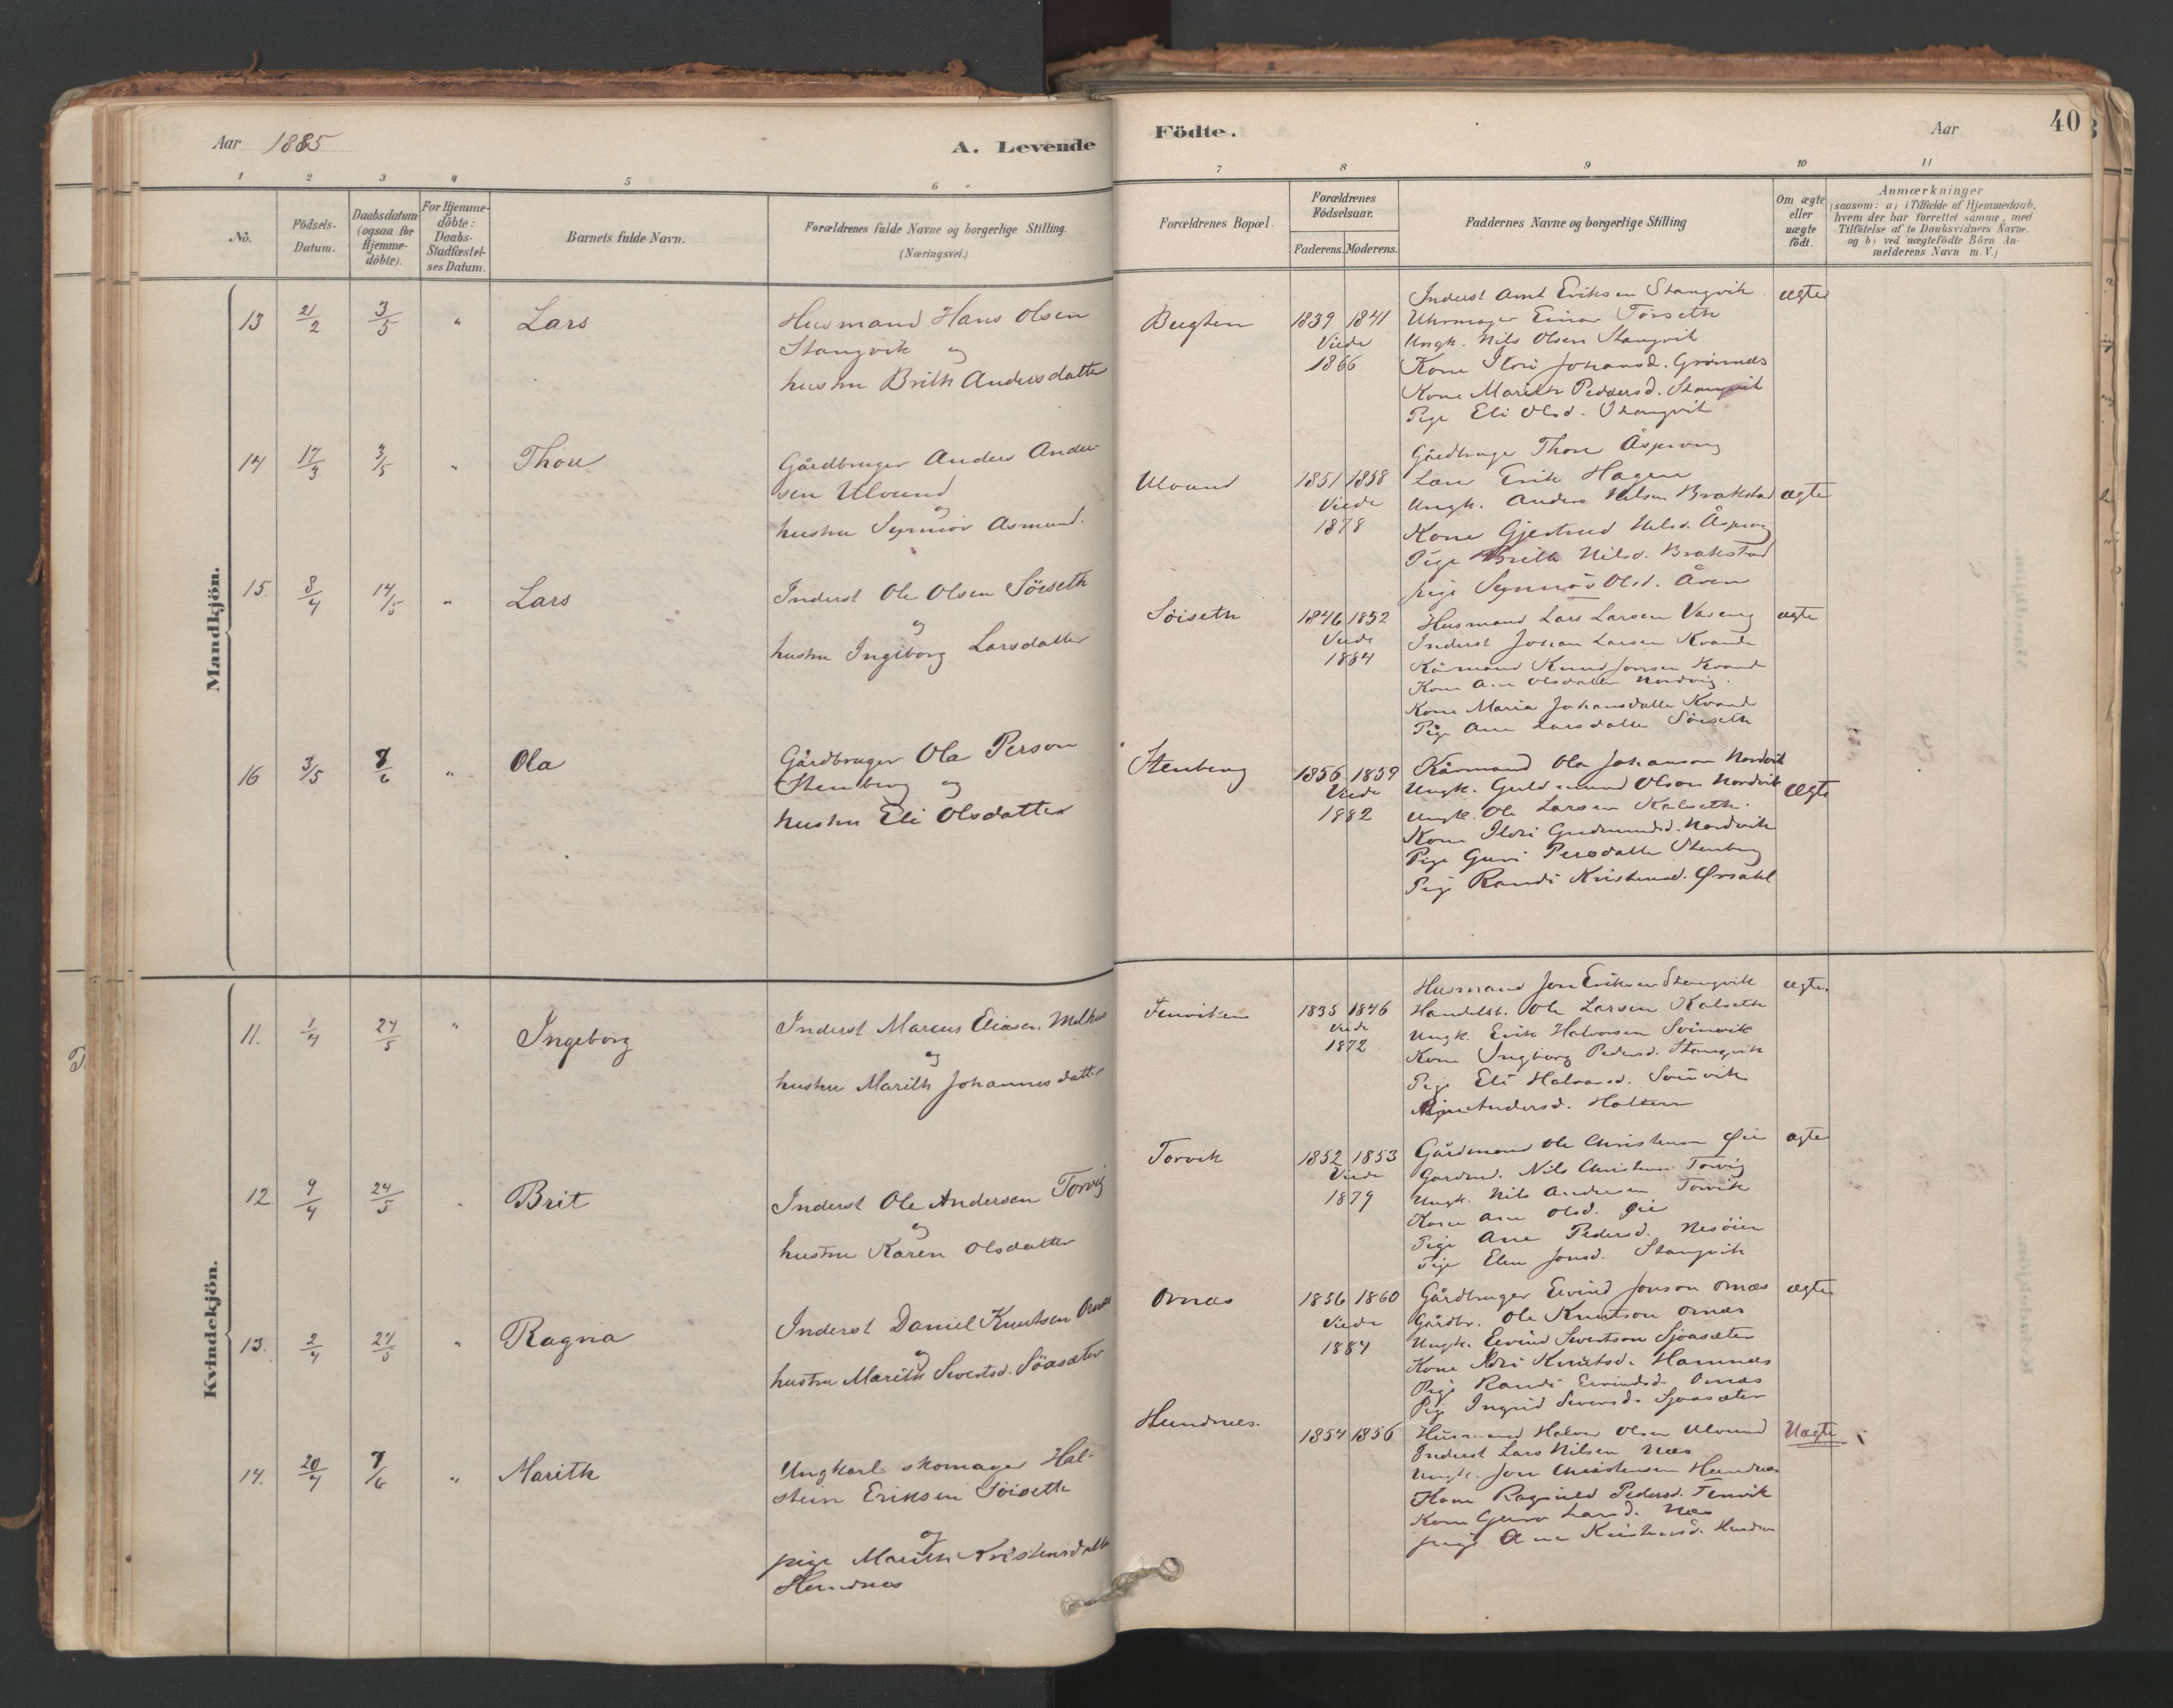 Aar 1885
A. Levende
1 2 3 4 5 6
No.
Födsels-Datum.
Daabsdatum (ogsaa for Hjemme-döbte).
For Hjemme-döbte: Daabs-Stadfæstel-ses Datum.
Barnets fulde Navn.
Forældrenes fulde Navne og borgerlige Stilling.
(Næringsvei.)
Mandkjön.
13 21/2 3/5 " Lars
Husmand Hans Olsen
Stangvik og
hustru Brith Andersdatter
14 17/3 3/5 " Thore
Gårdbruger Anders Ander-
sen Ulvund
og
hustru Synnöv Asmund.
15. 8/4 14/5 " Lars
Inderst Ole Olsen Söiseth
og
hustru Ingeborg Larsdatter
16 3/5 7/6 " Ola
Gårdbruger Ola Person
Stenberg og
hustru Eli Olsdatter
Kvindekjön.
11. 1/4 24/5 " Ingeborg
Inderst Marcus Eliasen Melhus
og
hustru Marith Johannesdatter
12. 9/4 24/5 " Brit
Inderst Ole Andersen Torvig
og
hustru Karen Olsdatter
13. 2/4 24/5 " Ragna
Inderst Daniel Knutsen Ornæs
og
hustru Marith Sivertsd. Söasæter
14. 20/4 7/6 " Marith
Ungkarl skomager Hal-
stein Eriksen Söiseth
og
pige Marith Kristensdatter
Hendnes
Födte.
Aar 40
7 8 9 10 11
Forældrenes Bopæl.
Forældrenes Födselsaar.
Faderens. Moderens.
Faddernes Navne og borgerlige Stilling
Om ægte eller uægte födt.
Anmærkninger
(saasom: a) i Tilfælde af Hjemmedaab,
hvem der har forrettet samme, med
Tilföielse af to Daabsvidners Navne.
og b) ved uægtefödte Börn An-
melderens Navn m. V.)
Bugten 1839 1841
Viede
1866
Inderst Arnt Eriksen Stangvik ægte
Uhrmager Einar Törseth
Ungk. Nils Olsen Stangvik
Kone Ildri Johansd. Grönnæs
Kone Marith Pedersd. Stangvik
Pige Eli Olsd. Stangvik
Ulvund 1851 1858
Viede
1878
Gårdbruger Thore Åsprong
Lær. Erik Hagen
Ungk. Anders Nilsen Brakstad ægte
Kone Gjertrud Nilsd. Åsprong
Pige Brith Nilsd. Brakstad
pige Synnöv Olsd. Åren
Söiseth 1846 1852
Viede
1884
Husmand Lars Larsen Vaseng ægte
Inderst Johan Larsen Kvande
Kårmand Knud Jonsen Kvande
Kone Ane Olsdatter Nordvig.
Kone Maria Johansdatter Kvande
Pige Ane Larsdatter Söiseth
Stenberg 1856 1859
Viede
1882
Kårmand Ola Johanson Nordvik
Ungk. Guldmund Olson Nordvik ægte
Ungk. Ole Larsen Kalseth.
Kone Ildri Gudmundsd. Nordvik
Pige Guri Persdatter Stenberg
Pige Randi Kristensd. Ørsahl
Fenviken 1835 1846
Viede
1872
Husmand Jon Eriksen Stangvik ægte.
Handelsb. Ole Larsen Kalseth
Ungk. Erik Halvorsen Svinvik
Kone Ingborg Pedersd. Stangvik
Pige Eli Halvorsd. Svinvik
Andersd. Halten
Torvik 1852 1853
Viede
1879
Gårdmand Ole Christensen Øie ægte
Gardmd. Nils Christensen Torvig
Ungk. Nils Andersen Torvik
Kone Ane Olsd. Øie
Pige Ane Pedersd. Nesöien
Pige Elen Jonsd. Stangvik
Ornæs 1856 1860
Viede
1884
Gårdbruger Eivind Jonson Ornæs ægte
Gårdbr. Ole Knutson Ornæs
Ungk. Eivind Sivertson Sjöasæter
Kone Ildri Knutsd. Hamnæs
Pige Randi Eivindsd. Ornæs
Pige Ingrid Siversd. Sjöasæter
Hendnes. 1854 1856
Husmand Halvor Olsen Ulvund Uægte
Inderst Lars Nilsen Næs
Ungk. Jon Christensen Hendnæs
Kone Ragnild Pedersd. Fenvik
Kone Guro Larsd. Næs
pige Ane Kristensd. Hendnæs